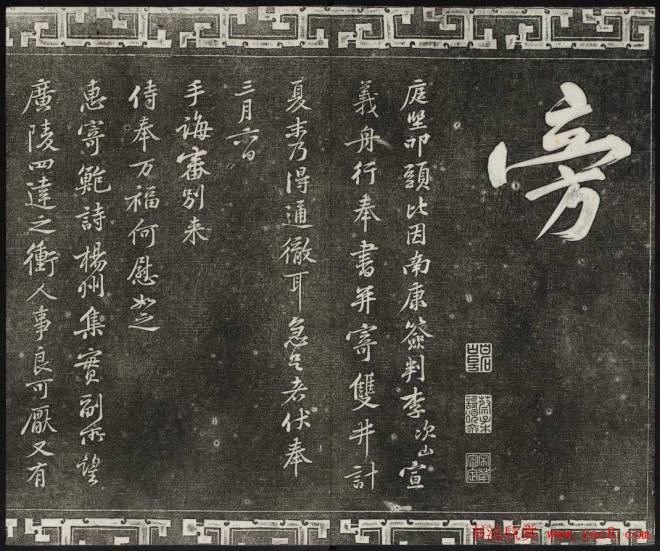 旁
庭堅叩頭比因南康簽判李次山宣
義舟行奉書并寄雙井計
夏末乃得通徹耳急足者伏奉
三月六日
手誨審別来
侍奉万福何慰如之
惠寄鮑詩楊州集實副所望
廣陵四達之衝人事良可厭又有
书法欣赏 www.yac8.com